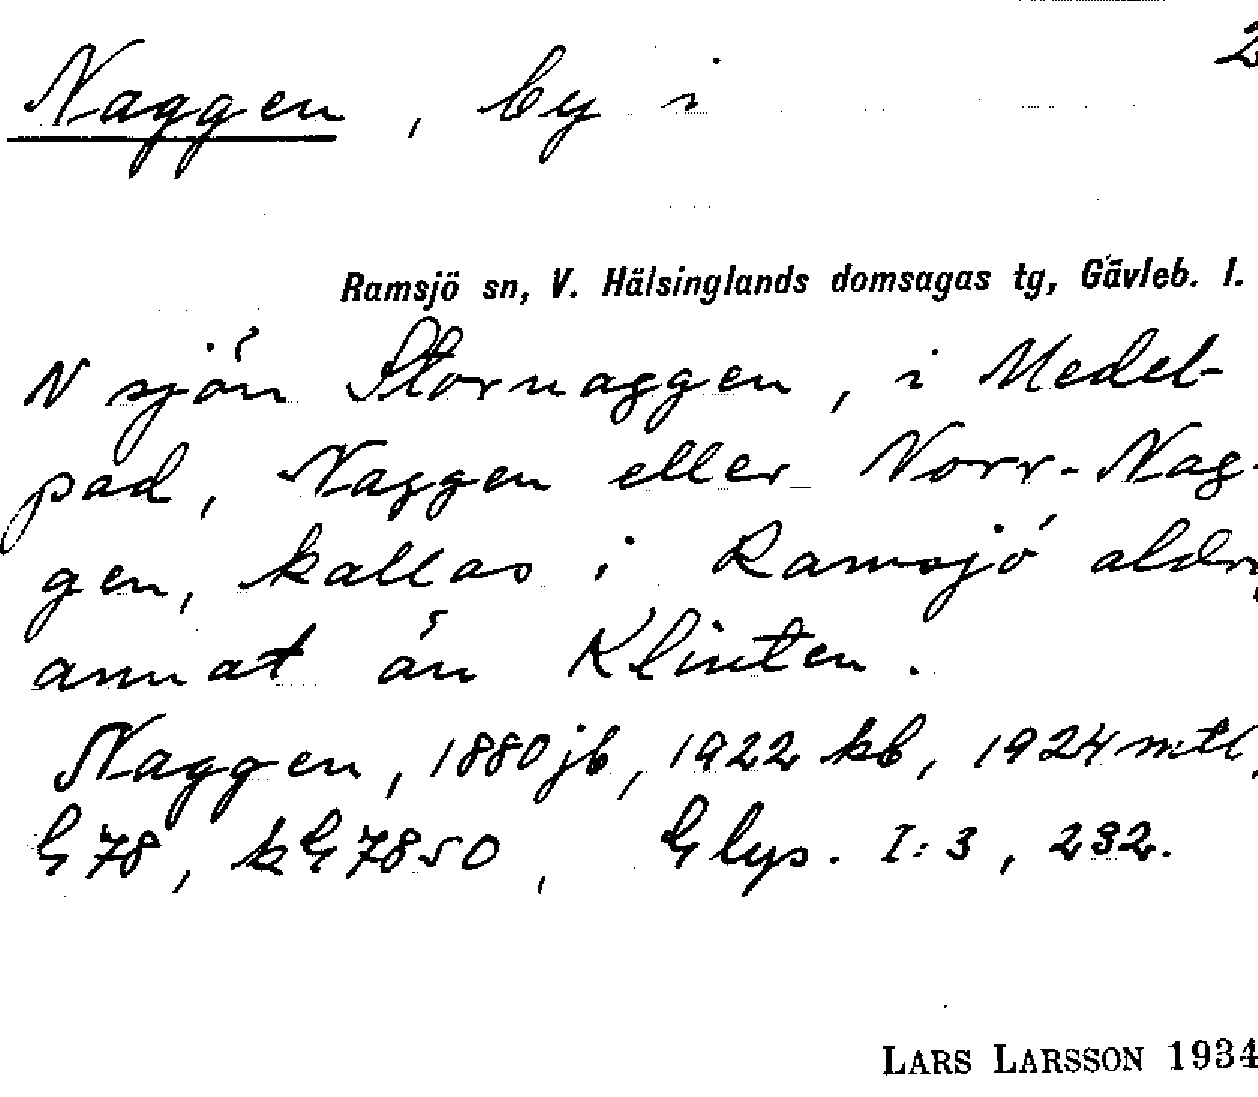 2
Naggen, by i
Ramsjö sn, V. Hälsinglands domsagas tg, Gävleb. l.
N sjön Stornaggen, i Medel-
pad, Naggen eller Norr-Nag-
gen, kallas i Ramsjö aldri
annat än Klinten.
Naggen, 1880 jb, 1922 kb, 1924 mtl,
G 78, kG 7850, Glys. I:3, 232.
LARS LARSSON 1934